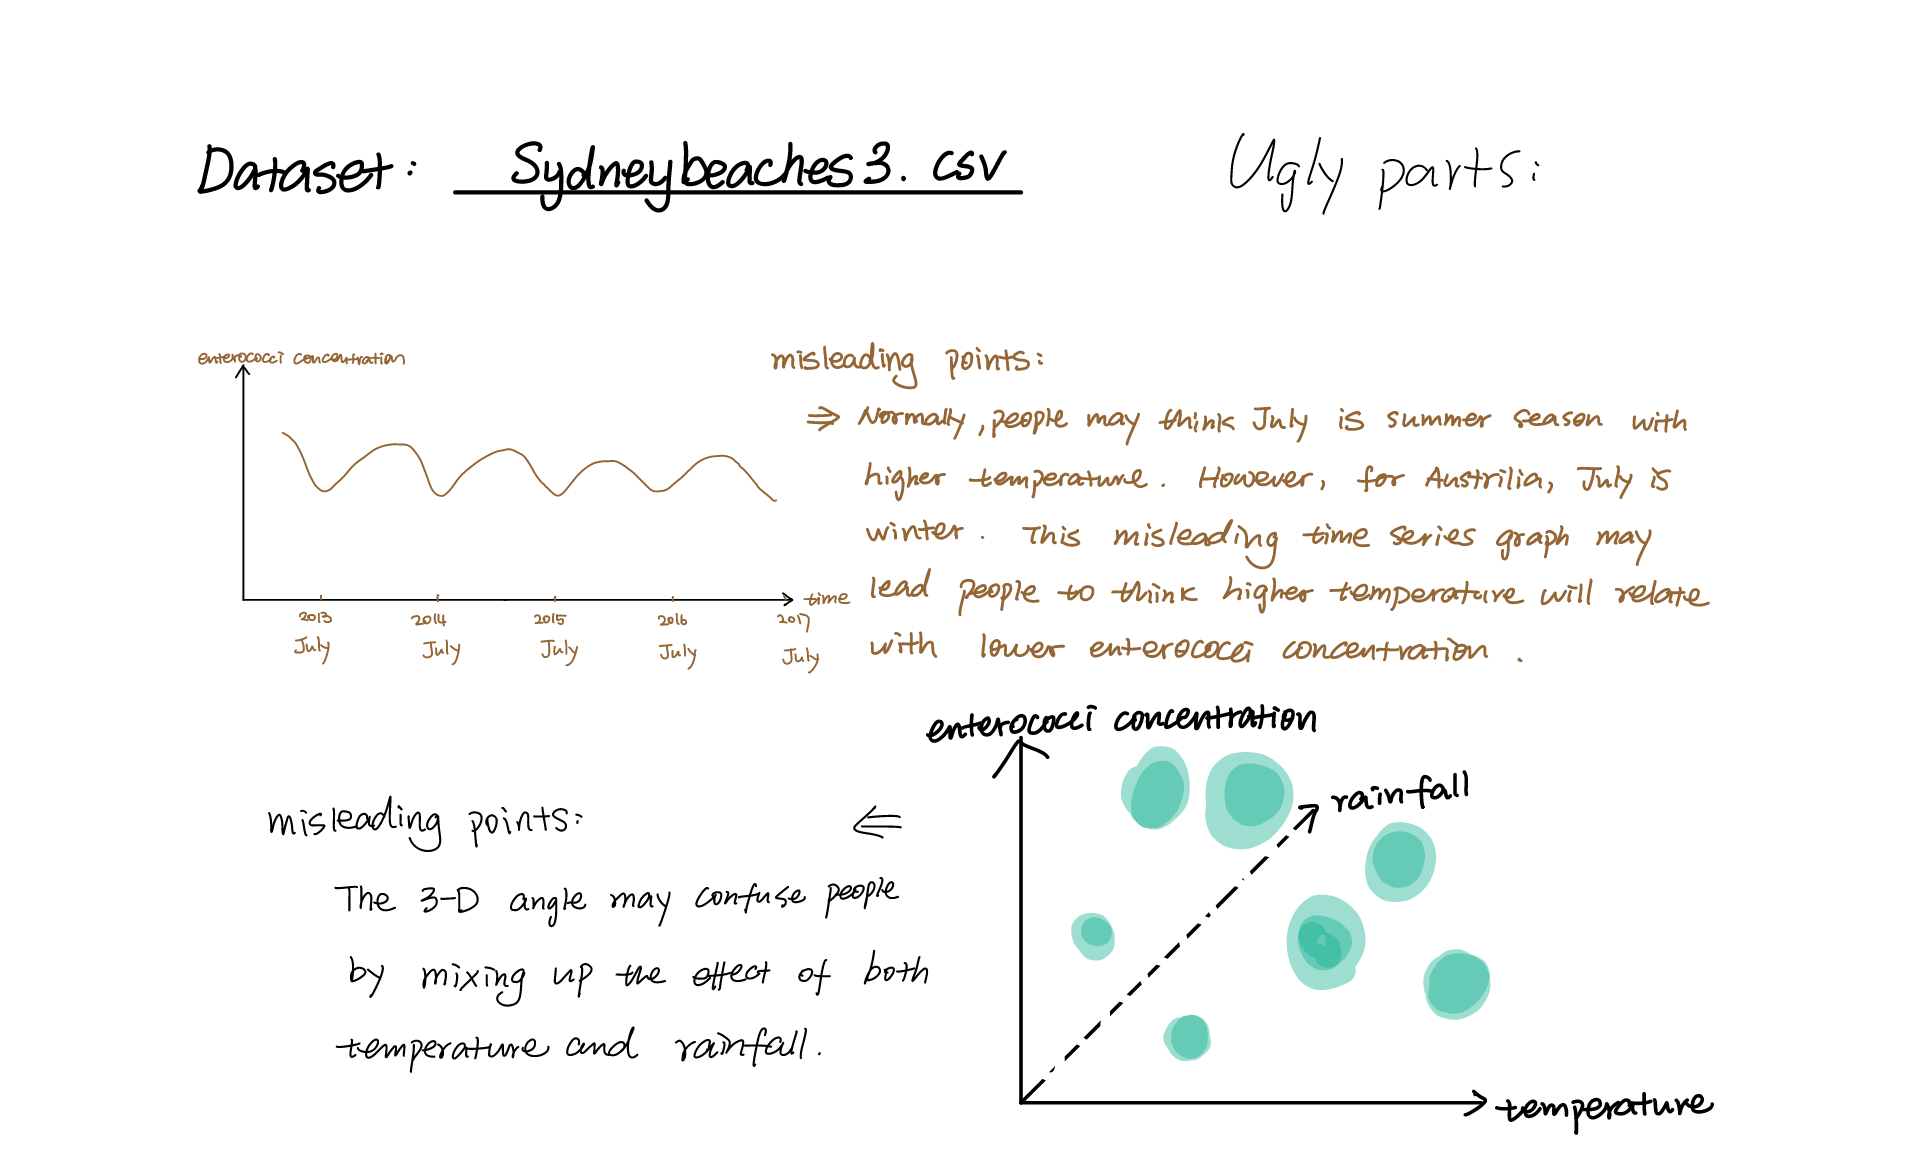 Dataset: Sydneybeaches3.csv
Ugly parts:
enterococci concentration
time
2013 2014 2015 2016 2017
July July July July July
misleading points:
⇒ Normally, people may think July is summer season with
higher temperature. However, for Austrilia, July is
winter. This misleading time series graph may
lead people to think higher temperature will relate
with lower enterococci concentration.
enterococci concentration
rainfall
temperature
misleading points: ⇐
The 3-D angle may confuse people
by mixing up the effect of both
temperature and rainfall.